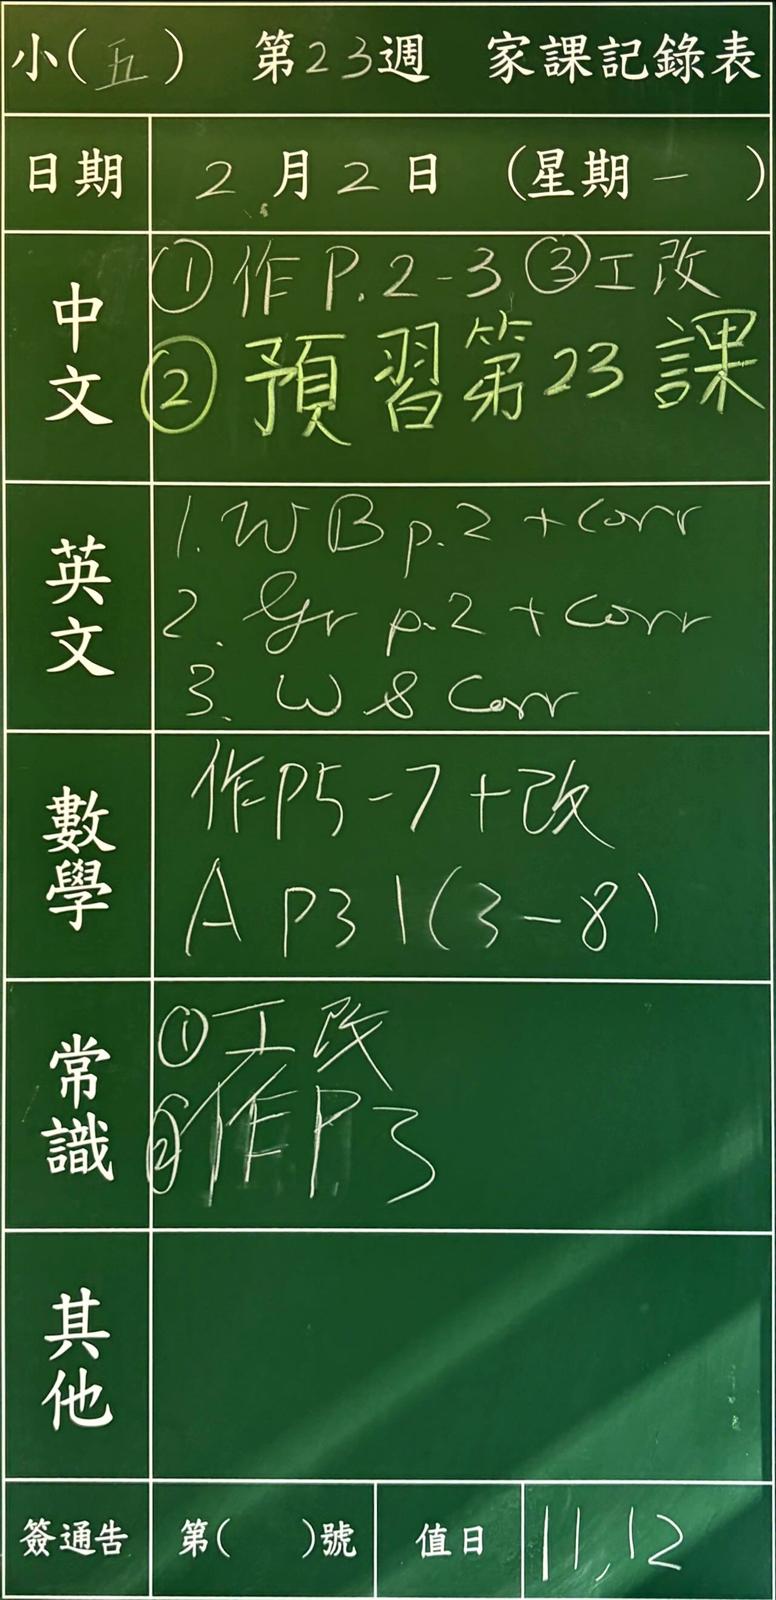 小(五) 第23週 家課記錄表
日期 2月2日 (星期一)
中文 ①作P.2-3 ③工改
②預習第23課
英文 1. WB p.2 + Corr
2. Gr p.2 + Corr
3. WS Corr
數學 作P5-7+改
A P31(3-8)
常識 ①工改
②作P.3
其他
簽通告 第( )號 值日 11,12